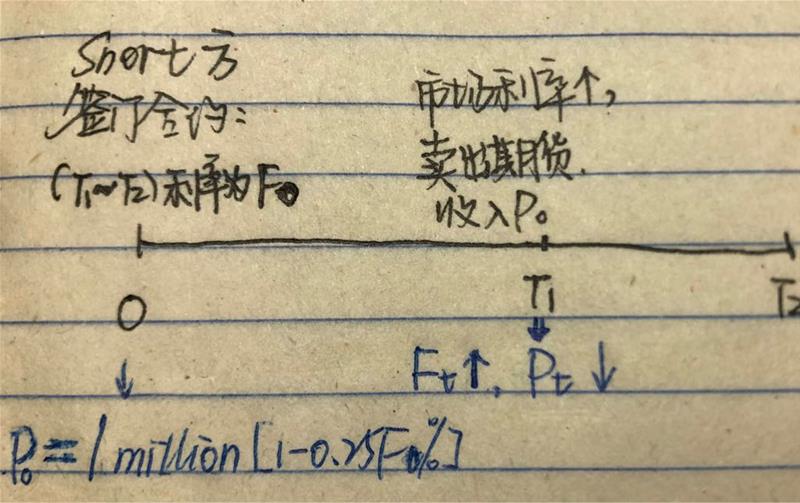 Short方
签订合约:
(T₁~T₂)利率为F₀
市场利率↑,
卖出期货.
收入P₀
0 T₁ T₂
↓ ⬇
Ft↑, Pt↓
P₀=1 million[1-0.25F₀%]